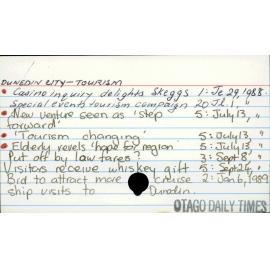 DUNEDIN CITY - TOURISM
• Casino inquiry delights Skeggs 1: Je 29, 1988.
Special events tourism campaign 20 Jl. 1, "
• New venture seen as 'step forward' 5: July 13, "
• 'Tourism changing' 5: July 13, "
• Elderly revels 'hope for region' 5: July 13, "
Put off by law fares? 3: Sept 8, "
Visitors receive whiskey gift 5: Sept 24, "
Bid to attract more cruise 2: Jan 6, 1989
ship visits to Dunedin.
OTAGO DAILY TIMES